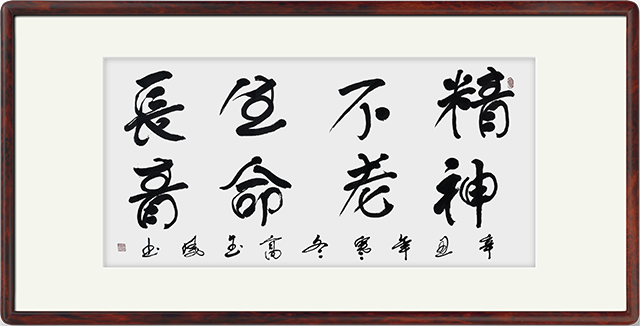 精神
不老
生命
長青
辛丑年寒冬高玉书